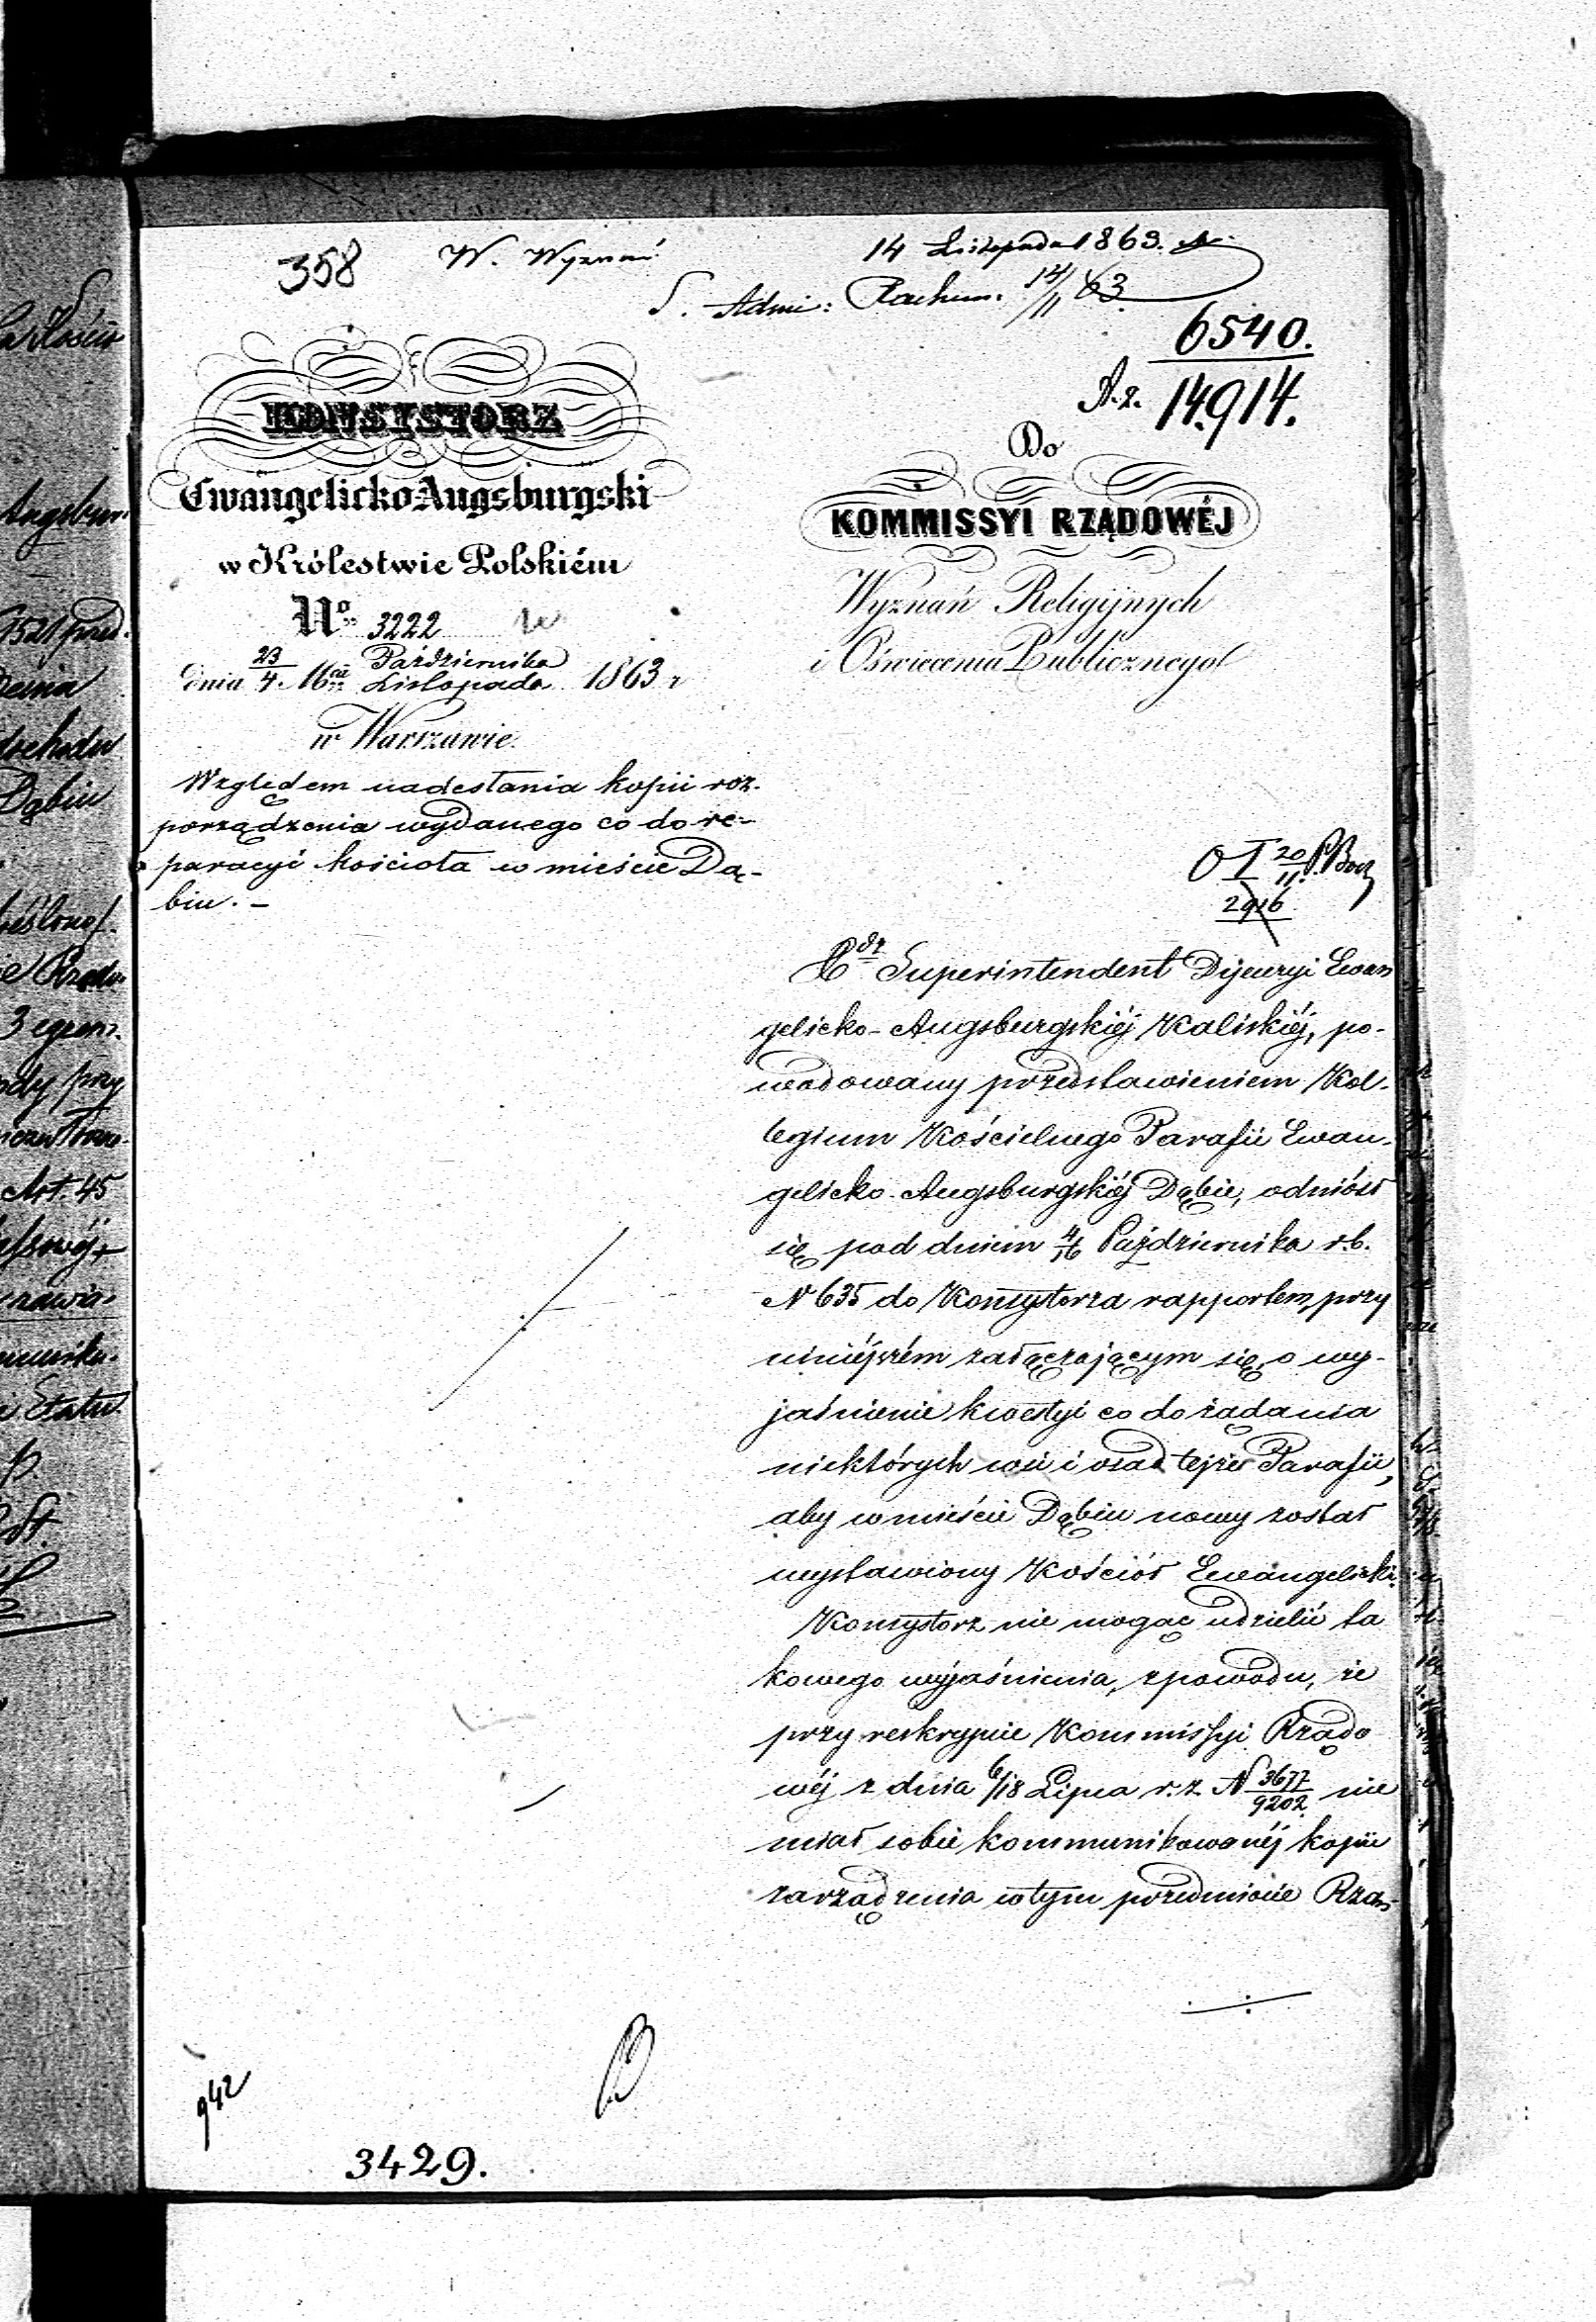 358
W. Wyznań
14 Listopada 1863.
S. Admi: Rachun. 14/11 63.
6540.
A.2. 14914.
KONSYSTORZ
Ewangelicko-Augsburgski
w Królestwie Polskiém
No 3222
dnia 23/4 Mca Października/Listopada 1863 r
w Warszawie.
Względem nadesłania kopii roz-
porządzenia wydanego co do re-
paracyi kościoła w mieście Dą-
biu. –
Do
KOMMISSYI RZĄDOWÉJ
Wyznań Religijnych
i Oświecenia Publicznego
O I 20/11
2916
Superintendent Dijecezyi Ewan
gelicko-Augsburgskiéj Kaliskiéj, po-
wodowany przedstawieniem Kol-
legium Kościelnego Parafii Ewan-
gelicko-Augsburgskiéj Dąbie, odniósł
się pod dniem 4/16 Października r.b.
N 635 do Konsystorza rapportem, przy
niniéjszém załączającym się, o wy-
jaśnienie kwestyi co do żądania
niektórych wsi i osad tejże Parafii,
aby w mieście Dąbiu nowy został
wystawiony Kościół Ewangelicki.
Konsystorz nie mogąc udzielić ta
kowego wyjaśnienia, z powodu, że
przy reskrypcie Kommissyi Rządo
wéj z dnia 6/18 Lipca r.z. N 3677/9202 nie
miał sobie kommunikowanéj kopii
zarządzenia w tym przedmiocie Rzą-
942
3429.